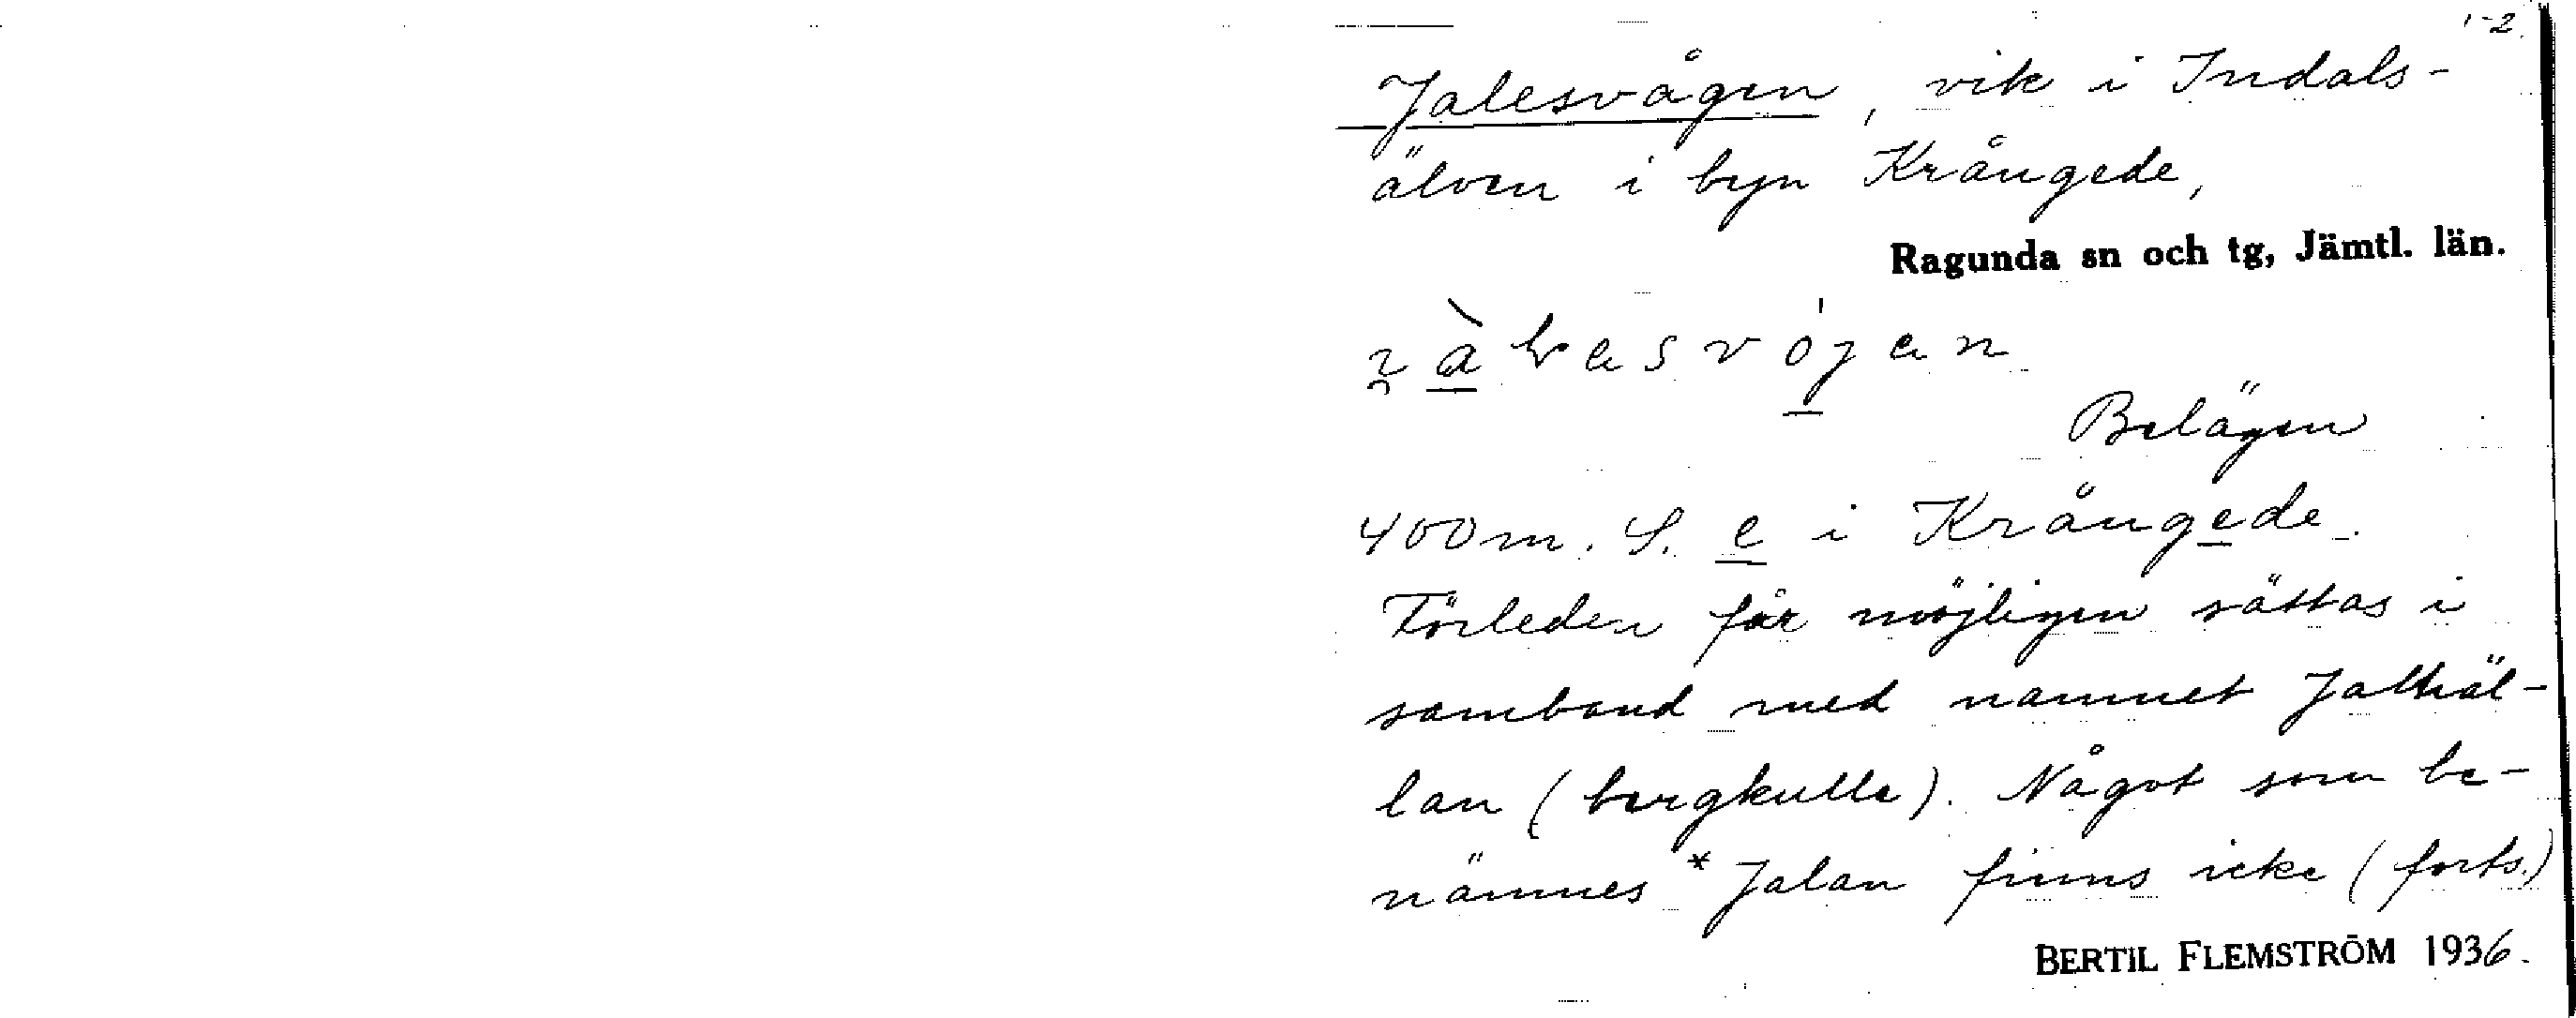 1-2.
Jalesvågen, vik i Indals-
älven i byn Krångede,
Ragunda sn och tg, Jämtl. län.
Belägen
400 m. S. e i Krångede.
Förleden får möjligen sättas i
samband med namnet Jalhäl-
lan (bergkulle). Något som be-
nämnes *Jalan finns icke (forts.)
BERTIL FLEMSTRÖM 1936.